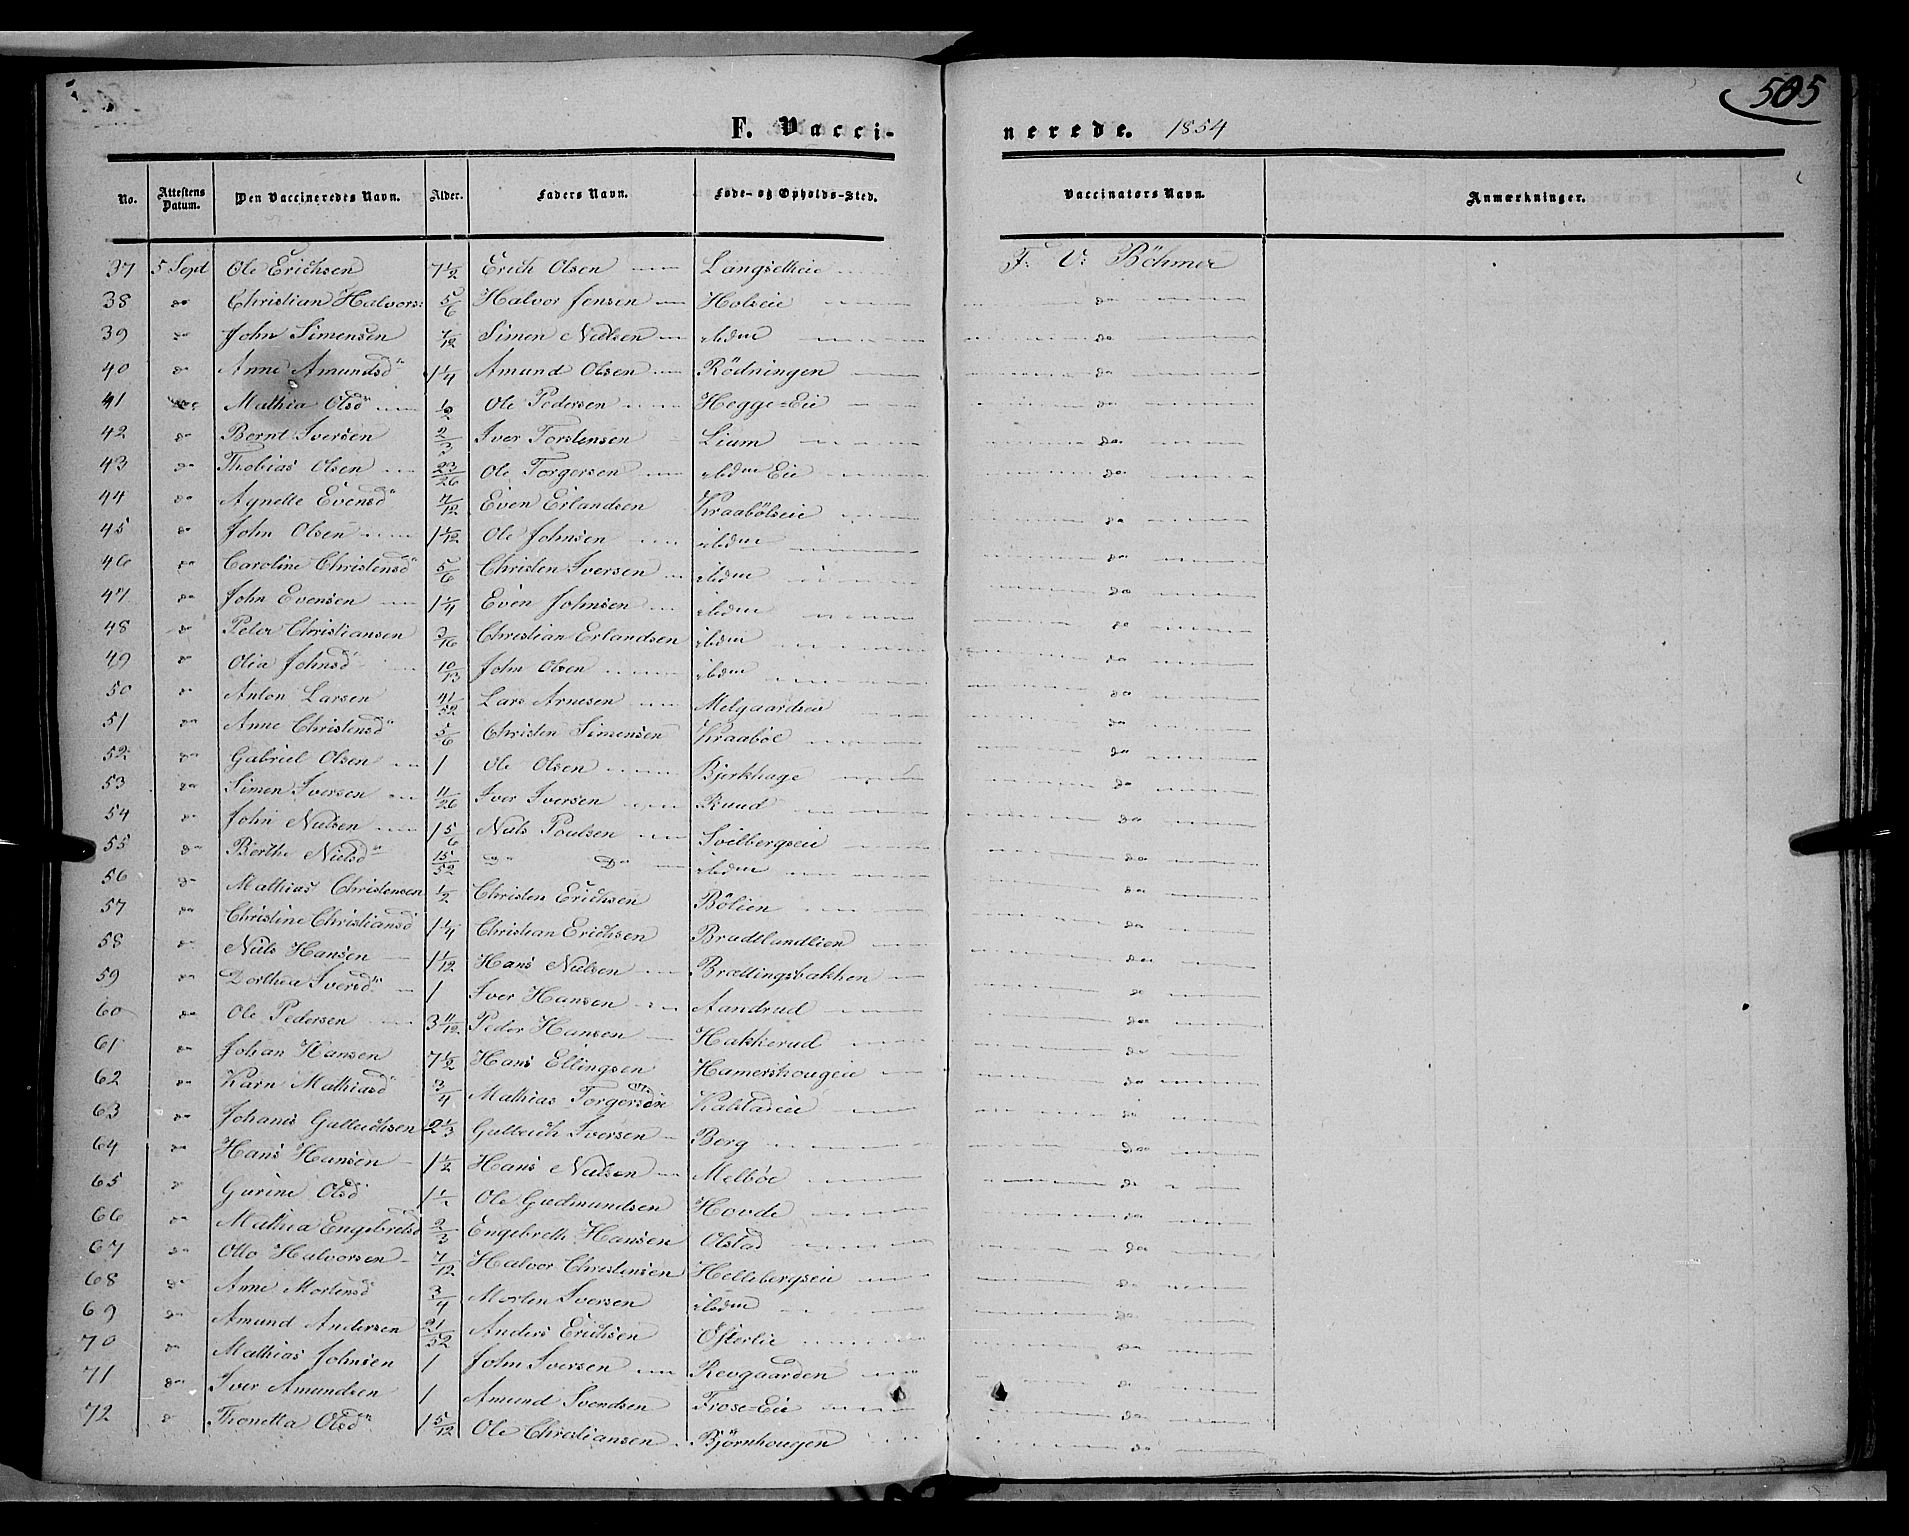 505
F. Vacci- nerede. 1854
No. Attestens Datum. Den Vaccineredes Navn. Alder. Faders Navn. Føde- og Opholds-Sted. Vaccinators Navn. Anmærkninger.
37 5 Sept Ole Erichsen 7 1/2 Erich Olsen Langsetheie F. V. Böhmer
38 do Christian Halvors: 5/6 Halvor Jensen Holseie do
39 do John Simensen 7/12 Simen Nielsen ibdm do
40 do Anne Amundsd 1 1/4 Amund Olsen Rödningen do
41 do Mathia Olsd 1/2 Ole Pedersen Hegge-Eie do
42 do Bernt Iversen 2/3 Iver Torstensen Lium do
43 do Thobias Olsen 23/26 Ole Torgersen ibdm Eie do
44 do Agnethe Evensd 7/12 Even Erlandsen Kraabölseie do
45 do John Olsen 1 1/12 Ole Johnsen ibdm do
46 do Caroline Christensd 5/6 Christen Iversen ibdm do
47 do John Evensen 1 1/4 Even Johnsen ibdm do
48 do Peter Christiansen 3/16 Christian Erlandsen ibdm do
49 do Olia Johnsd 10/13 John Olsen ibdm do
50 do Anton Larsen 41/52 Lars Arnesen Melgaardseie do
51 do Anne Christensd 5/6 Christen Simensen Kraaböl do
52 do Gabriel Olsen 1 Ole Olsen Bjerkhage do
53 do Simen Iversen 11/26 Iver Iversen Ruud do
54 do John Nielsen 1 5/6 Niels Poulsen Svelbergseie do
55 do Berthe Nielsd 15/52 do do ibdm do
56 do Mathias Christensen 1/2 Christen Erichsen Bölien do
57 do Christine Christiansd 1 1/4 Christian Erichsen Bradtlandlien do
58 do Niels Hansen 1 1/12 Hans Nielsen Brætlingsbakken do
59 do Dorthea Iversd 1 Iver Hansen Aandrud do
60 do Ole Pedersen 3 11/12 Peder Hansen Hakkerud do
61 do Johan Hansen 7 1/2 Hans Ellingsen Hamershougeie do
62 do Karn Mathiasd 3/4 Mathias Torgersen do
63 do Johanes Gulbrichsen 2 1/3 Gulbrich Iversen Berg do
64 do Hans Hansen 1 1/2 Hans Nielsen Melböe do
65 do Gurine Olsd 1 Ole Gudmundsen Hovde do
66 do Mathea Engebretsd 2/3 Engebreth Hansen Olstad do
67 do Otto Halvorsen 7/12 Halvor Christensen Hellebergseie do
68 do Anne Mortensd 3/4 Morten Iversen ibdm do
69 do Amund Andersen 21/52 Anders Erichsen Österlie do
70 do Mathias Johnsen 1 John Iversen Revgaarden do
71 do Iver Amundsen 1 Amund Svendsen Frose-Eie do
72 do Thonetta Olsd 1 5/12 Ole Christiansen Björnhougen do